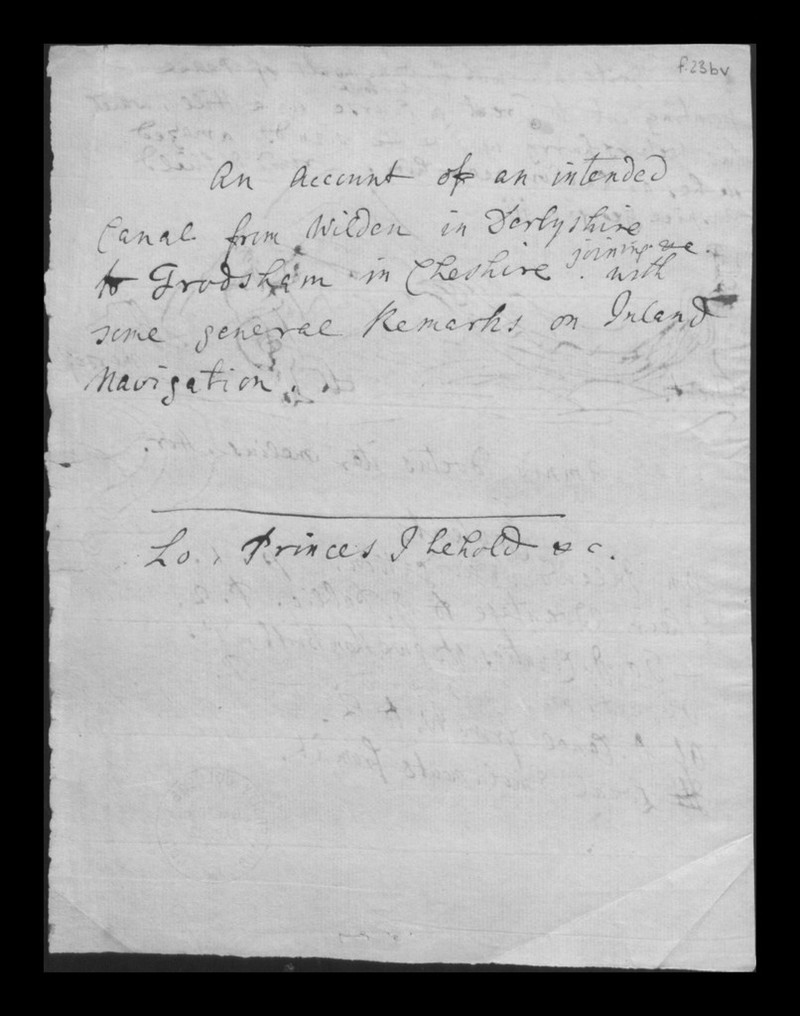 f.23bv
An Account of an intended
Canal from Wilden in Derbyshire
to Frodsham in Cheshire joining &c. with
some general Remarks on Inland
Navigation.
Lo, Princes I behold &c.